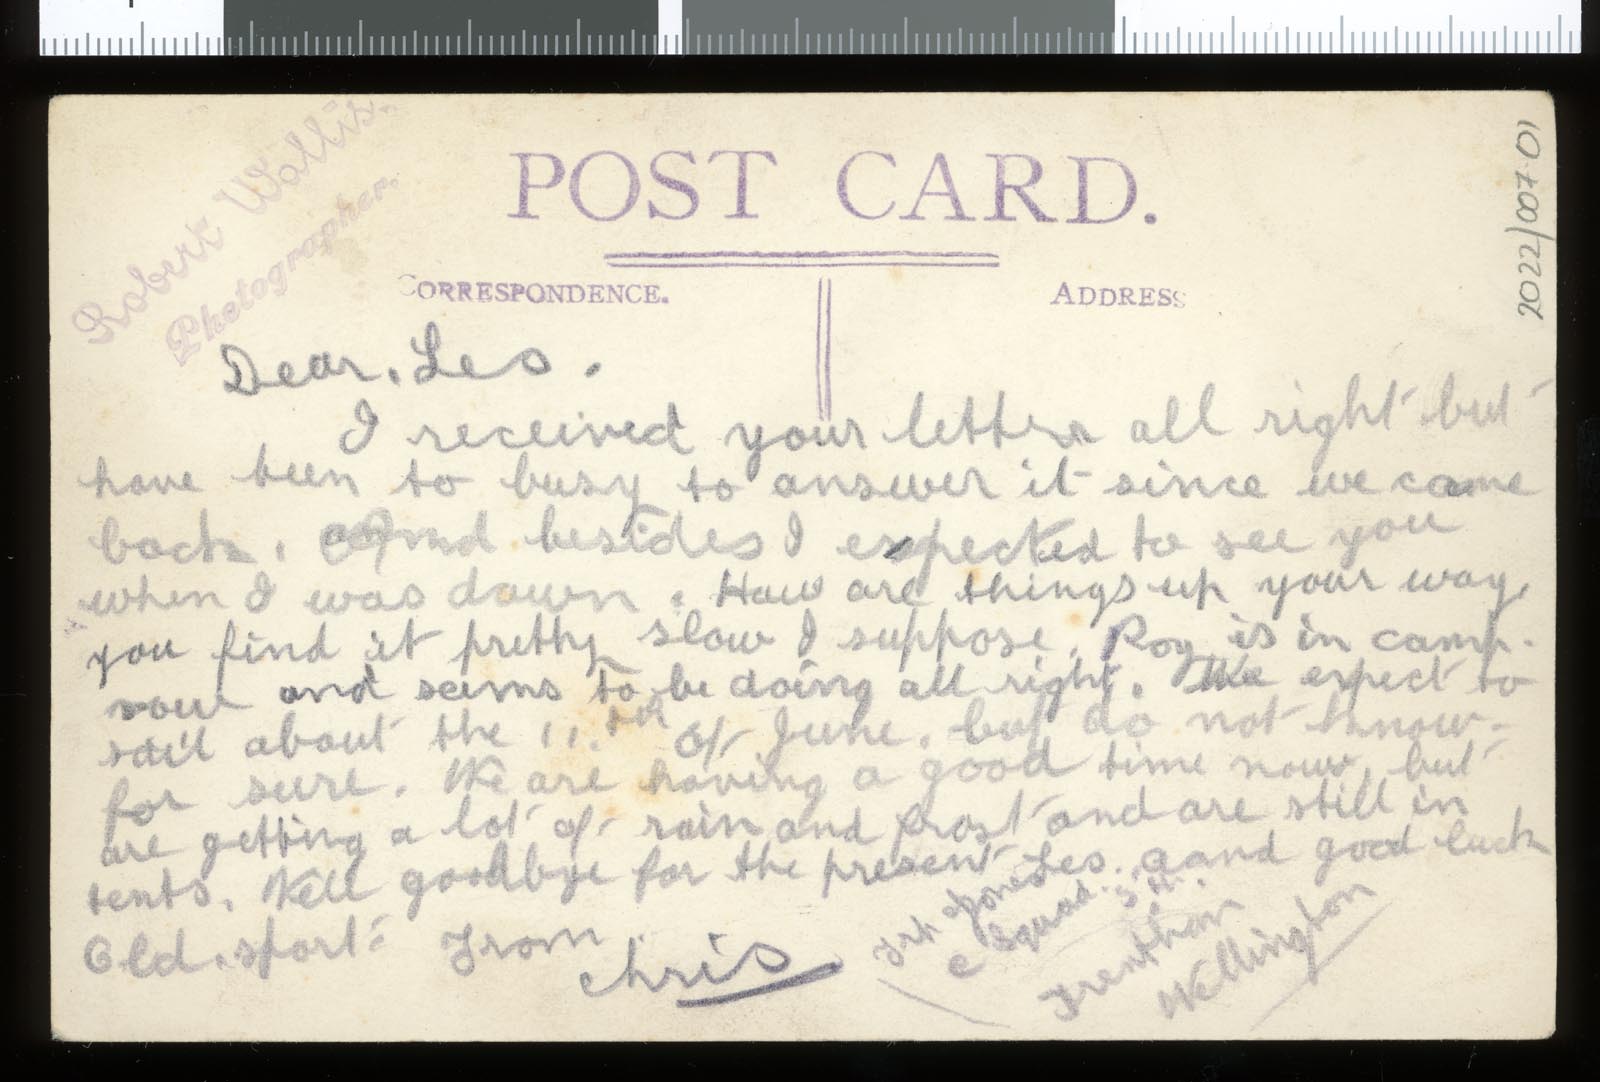 Robert Wallis.
Photographer.
POST CARD.
CORRESPONDENCE.
ADDRESS
2022/007.01
Dear. Les.
I received your letter all right but
have been to busy to answer it since we came
back, and besides I expected to see you
when I was down. How are things up your way,
you find it pretty slow I suppose. Roy is in camp.
now and seems to be doing all right. We expect to
sail about the 11.th of June. but do not know-
for sure. We are having a good time now, but
are getting a lot of rain and frost and are still in
tents. Well goodbye for the present Les. aand good luck
Old. sport. From.
Chris
Jones
C Squad.
Trentham
Wellington